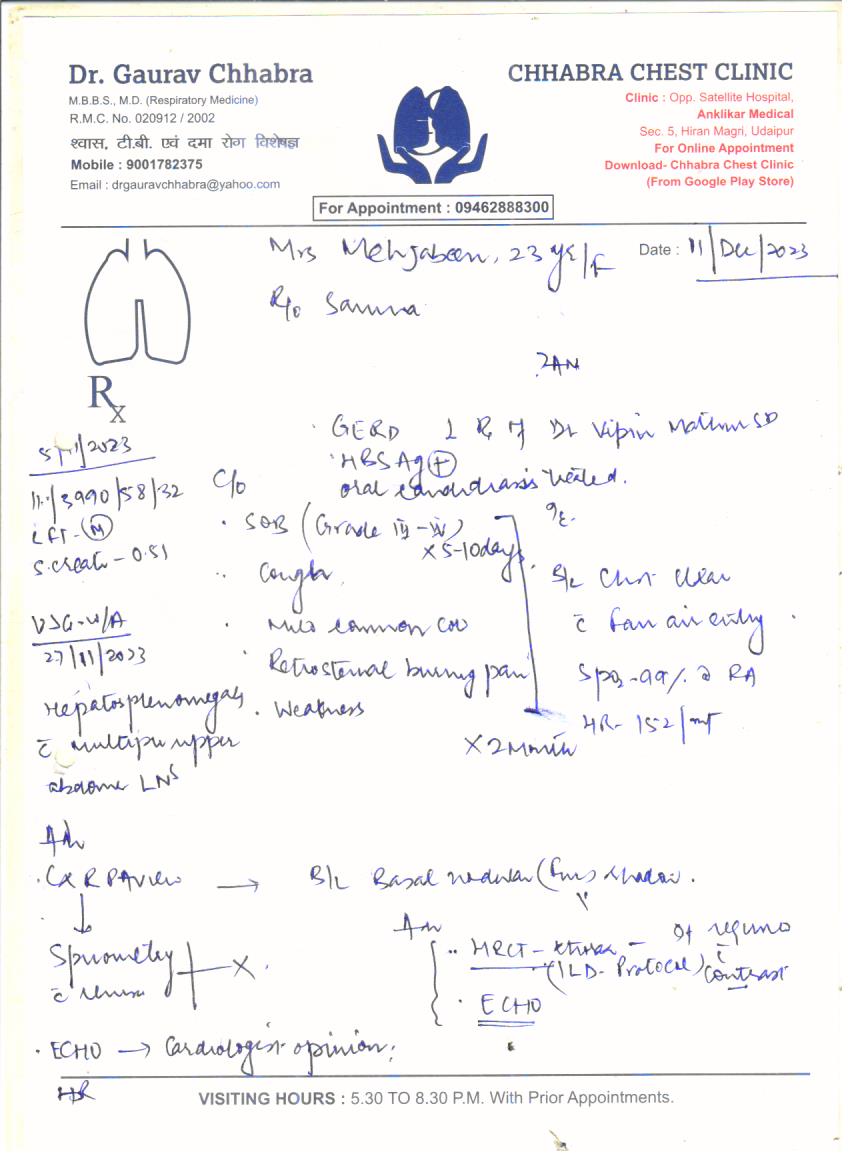 Dr. Gaurav Chhabra
M.B.B.S., M.D. (Respiratory Medicine)
R.M.C. No. 020912 / 2002
श्वास, टी.बी. एवं दमा रोग विशेषज्ञ
Mobile : 9001782375
Email : drgauravchhabra@yahoo.com
CHHABRA CHEST CLINIC
Clinic : Opp. Satellite Hospital,
Anklikar Medical
Sec. 5, Hiran Magri, Udaipur
For Online Appointment
Download- Chhabra Chest Clinic
(From Google Play Store)
For Appointment : 09462888300
Mrs Mehjabeen, 23 yrs/F
Date : 11/Dec/2023
R/o
Rx
GERD Dr Vipin Mathur
HBSAg (+)
oral candidiasis treated.
/2023
11. /3990/58/32
LFT - (N)
S. creat - 0.51
USG - W/A
27/11/2023
Hepatosplenomegaly
c̄ multiple upper
abdomen LNs
C/o
SOB (Grade III - IV)
x 5-10 days
Cough
Mild common cold
Retrosternal burning pain
Weakness
x 2 Month
O/E.
B/L Chest clear
c̄ Fair air entry
SpO2 - 99% @ RA
HR - 152/mt
Adv
CXR PA view → B/L Basal nodular
Spirometry
ECHO → Cardiologist opinion.
Adv
HRCT - thorax -
(ILD - Protocol) contrast
ECHO
VISITING HOURS : 5.30 TO 8.30 P.M. With Prior Appointments.